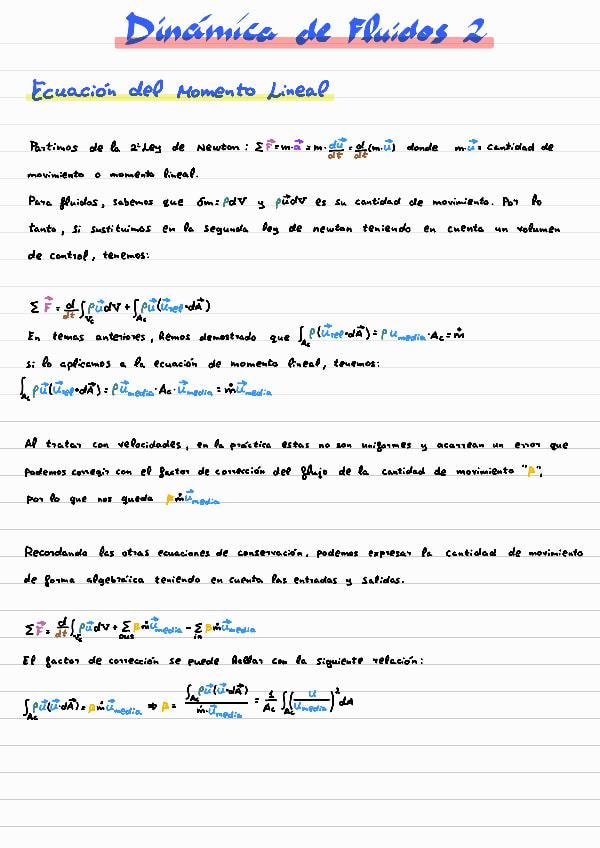 Dinámica de Fluidos 2
Ecuación del Momento Lineal
Partimos de la 2ª Ley de Newton: ΣF⃗ = m·a⃗ = m·du⃗/dt = d/dt(m·u⃗) donde m·u⃗ = cantidad de
movimiento o momento lineal.
Para fluidos, sabemos que δm = ρdV y ρu⃗dV es su cantidad de movimiento. Por lo
tanto, si sustituimos en la segunda ley de newton teniendo en cuenta un volumen
de control, tenemos:
ΣF⃗ = d/dt ∫_Vc ρu⃗dV + ∫_Ac ρu⃗(u⃗rel•dA⃗)
En temas anteriores, hemos demostrado que ∫_Ac ρ(u⃗rel•dA⃗) = ρ u media·Ac = ṁ
si lo aplicamos a la ecuación de momento lineal, tenemos:
∫_Ac ρu⃗(u⃗rel•dA⃗) = ρu⃗media·Ac·u⃗media = ṁu⃗media
Al tratar con velocidades, en la práctica estas no son uniformes y acarrean un error que
podemos corregir con el factor de corrección del flujo de la cantidad de movimiento "β",
por lo que nos queda βṁu⃗media
Recordando las otras ecuaciones de conservación, podemos expresar la cantidad de movimiento
de forma algebráica teniendo en cuenta las entradas y salidas.
ΣF⃗ = d/dt ∫_Vc ρu⃗dV + Σ_out βṁu⃗media - Σ_in βṁu⃗media
El factor de corrección se puede hallar con la siguiente relación:
∫_Ac ρu⃗(u⃗·dA⃗) = βṁu⃗media ⇒ β = ∫_Ac ρu⃗(u⃗·dA⃗) / ṁ·u⃗media = 1/Ac ∫_Ac (u/u media)² dA